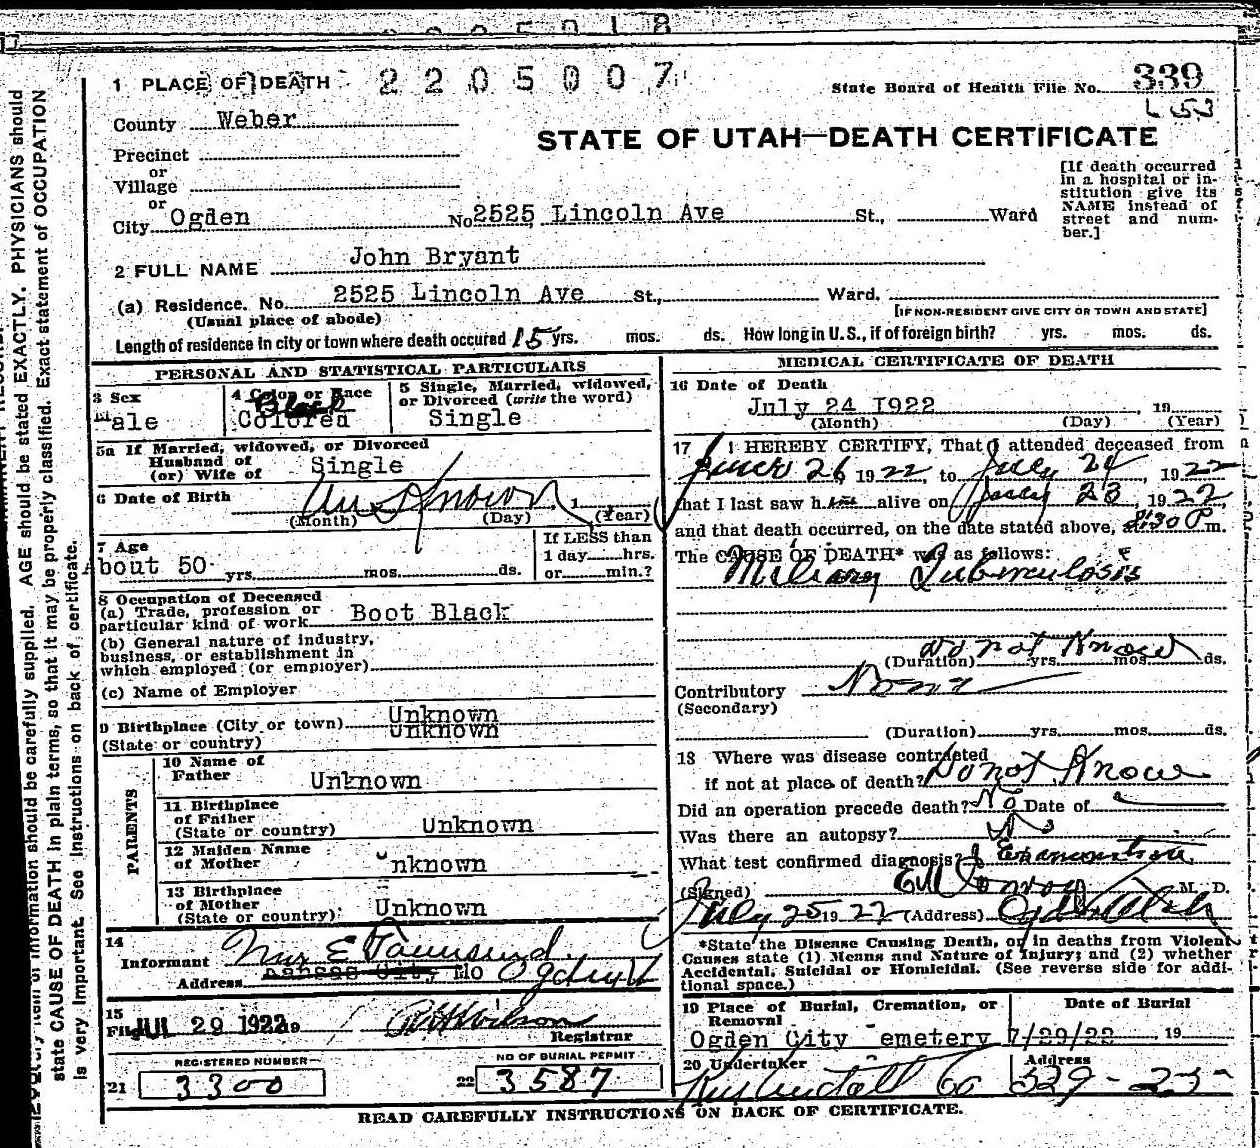 1 PLACE OF DEATH 2205007
State Board of Health File No. 339
County Weber
STATE OF UTAH—DEATH CERTIFICATE
Precinct
or
Village
or
City Ogden No 2525 Lincoln Ave St., Ward
[If death occurred
in a hospital or in-
stitution give its
NAME instead of
street and num-
ber.]
2 FULL NAME John Bryant
(a) Residence. No. 2525 Lincoln Ave St., Ward.
(Usual place of abode) [IF NON-RESIDENT GIVE CITY OR TOWN AND STATE]
Length of residence in city or town where death occured 15 yrs. mos. ds. How long in U.S., if of foreign birth? yrs. mos. ds.
PERSONAL AND STATISTICAL PARTICULARS
3 Sex
Male
4 Color or Race
Black
Colored
5 Single, Married, widowed,
or Divorced (write the word)
Single
5a If Married, widowed, or Divorced
Husband of
(or) Wife of Single
6 Date of Birth Unknown 1
(Month) (Day) (Year)
7 Age
About 50 yrs. mos. ds.
If LESS than
1 day hrs.
or min.?
8 Occupation of Deceased
(a) Trade, profession or
particular kind of work Boot Black
(b) General nature of industry,
business, or establishment in
which employed (or employer)
(c) Name of Employer
9 Birthplace (City or town) Unknown
(State or country) Unknown
PARENTS
10 Name of
Father Unknown
11 Birthplace
of Father
(State or country) Unknown
12 Maiden Name
of Mother Unknown
13 Birthplace
of Mother
(State or country) Unknown
14
Informant Mrs E Townsend
Address Kansas City Mo Ogden U
15
Filed JUL 29 1922 19
Registrar
REGISTERED NUMBER
21 3300
NO OF BURIAL PERMIT
22 3587
MEDICAL CERTIFICATE OF DEATH
16 Date of Death
July 24 1922, 19
(Month) (Day) (Year)
17 I HEREBY CERTIFY, That I attended deceased from
June 26 1922, to July 24, 1922
that I last saw him alive on July 23 1922,
and that death occurred, on the date stated above, 30 P m.
The CAUSE OF DEATH* was as follows:
Miliary Tuberculosis
do not Know
(Duration) yrs. mos. ds.
Contributory None
(Secondary)
(Duration) yrs. mos. ds.
18 Where was disease contracted
if not at place of death? Do not Know
Did an operation precede death? No Date of
Was there an autopsy? No
What test confirmed diagnosis? Examination
(Signed) M. D.
July 25 1922 (Address) Ogden Utah
*State the Disease Causing Death, or in deaths from Violent
Causes state (1) Means and Nature of Injury; and (2) whether
Accidental, Suicidal or Homicidal. (See reverse side for addi-
tional space.)
19 Place of Burial, Cremation, or
Removal
Ogden City Cemetery
Date of Burial
7/29/22 19
20 Undertaker
Address
329-25
READ CAREFULLY INSTRUCTIONS ON BACK OF CERTIFICATE.
information should be carefully supplied. AGE should be stated EXACTLY. PHYSICIANS should
state CAUSE OF DEATH in plain terms, so that it may be properly classified. Exact statement of OCCUPATION
is very important. See Instructions on back of certificate.